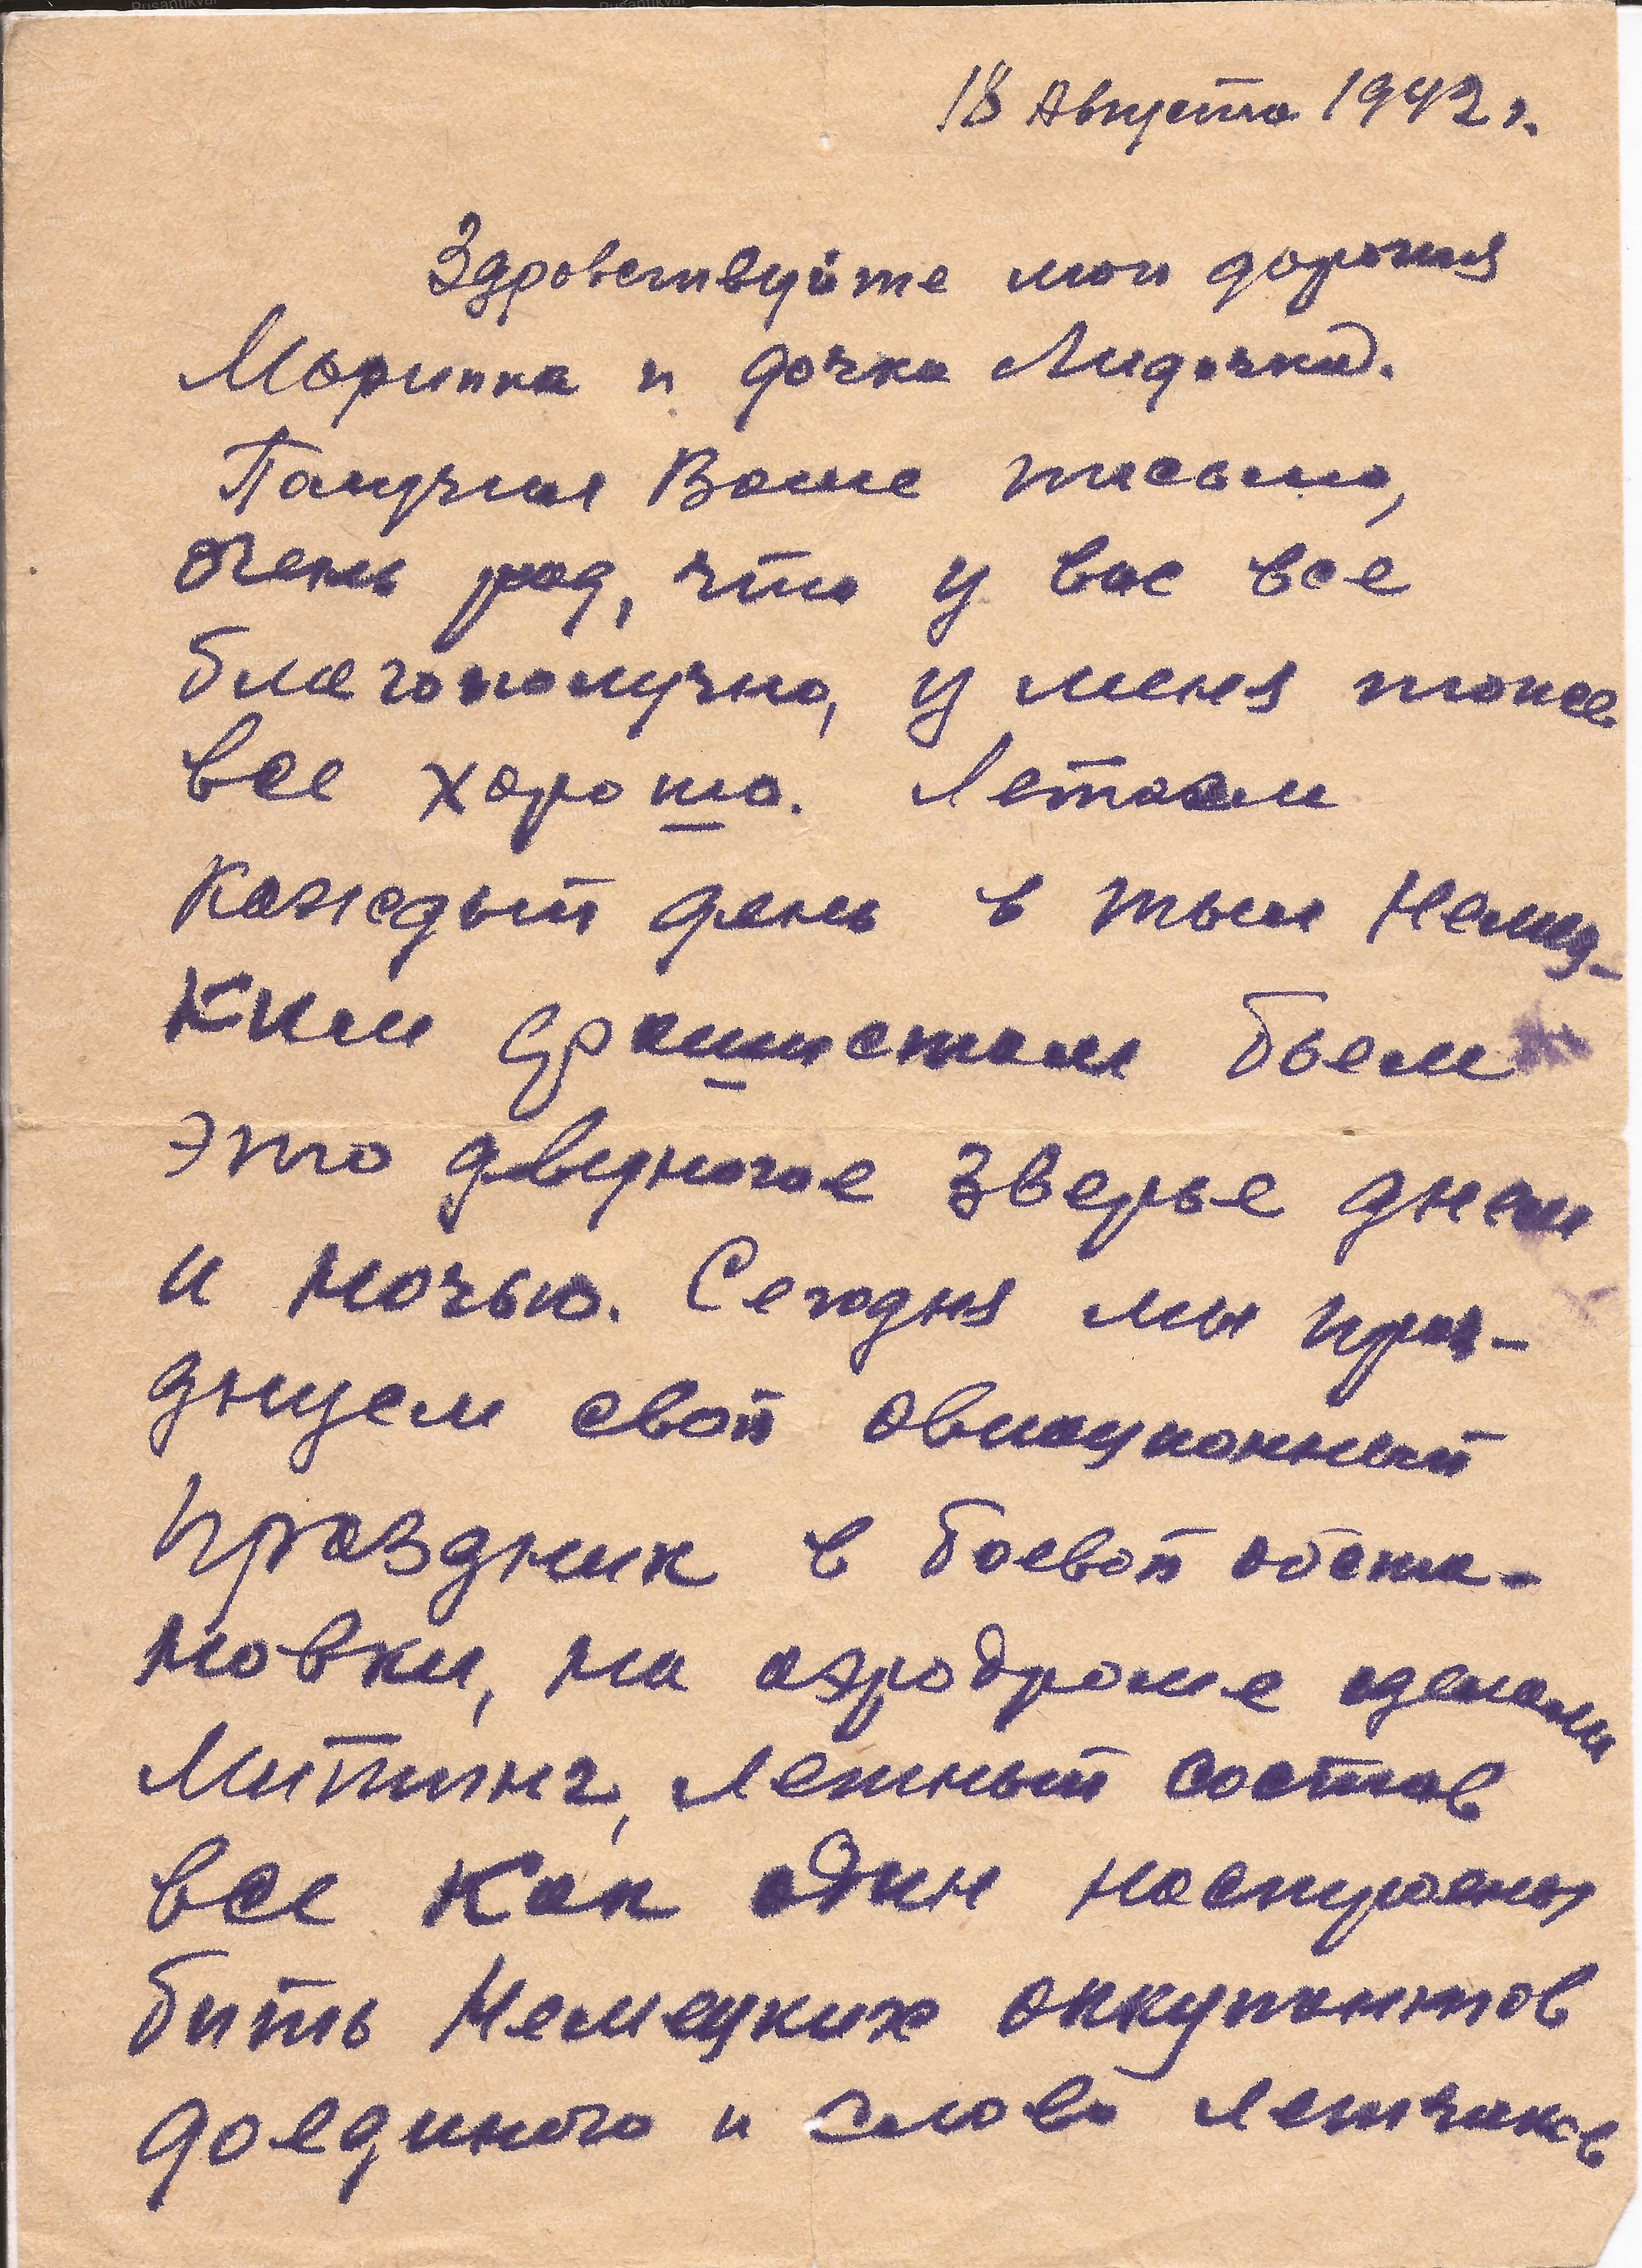 18 Августа 1942 г.
Здравствуйте мои дорогия
Марийка и дочка Лидочка.
Получил Ваше письмо,
очень рад, что у вас все
благополучно, у меня тоже
все хорошо. Летаем
каждый день в тыл Немец-
ким фашистам бьем
это двуногое зверье днем
и ночью. Сегодня мы праз-
днуем свой авиационный
праздник в боевой обста-
новки, на аэродроме сделали
Митинг, летный состав
все как один настроены
бить Немецких оккупантов
доединого и слово летчиков